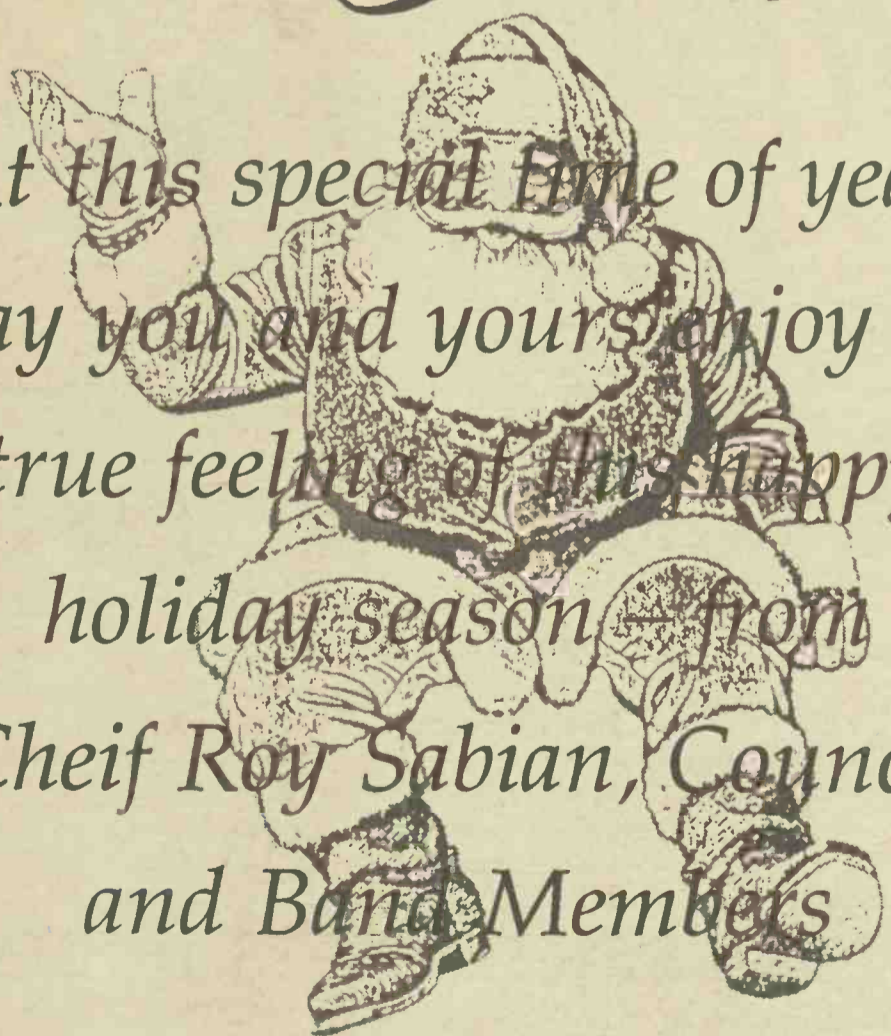 t this special time of yea
ay you and yours enjoy
true feeling of this happy
holiday season – from
Cheif Roy Sabian, Counc
and Band Members